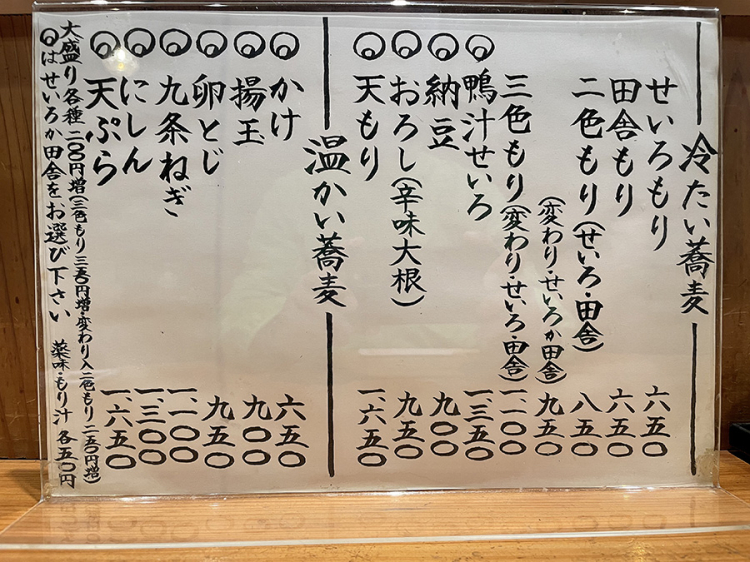 冷たい蕎麦
せいろもり 六五〇
田舎もり 六五〇
二色もり(せいろ・田舎) 八五〇
(変わり・せいろか田舎) 九五〇
三色もり(変わり・せいろ・田舎) 一、一〇〇
◎鴨汁せいろ 一、三五〇
◎納豆 九〇〇
◎おろし(辛味大根) 九五〇
◎天もり 一、六五〇
温かい蕎麦
◎かけ 六五〇
◎揚玉 九〇〇
◎卵とじ 九五〇
◎九条ねぎ 一、一〇〇
◎にしん 一、三〇〇
◎天ぷら 一、六五〇
大盛り各種 二〇〇円増(三色もり 三五〇円増・変わり入二色もり 二五〇円増)
◎はせいろか田舎をお選び下さい 薬味・もり汁 各五〇円